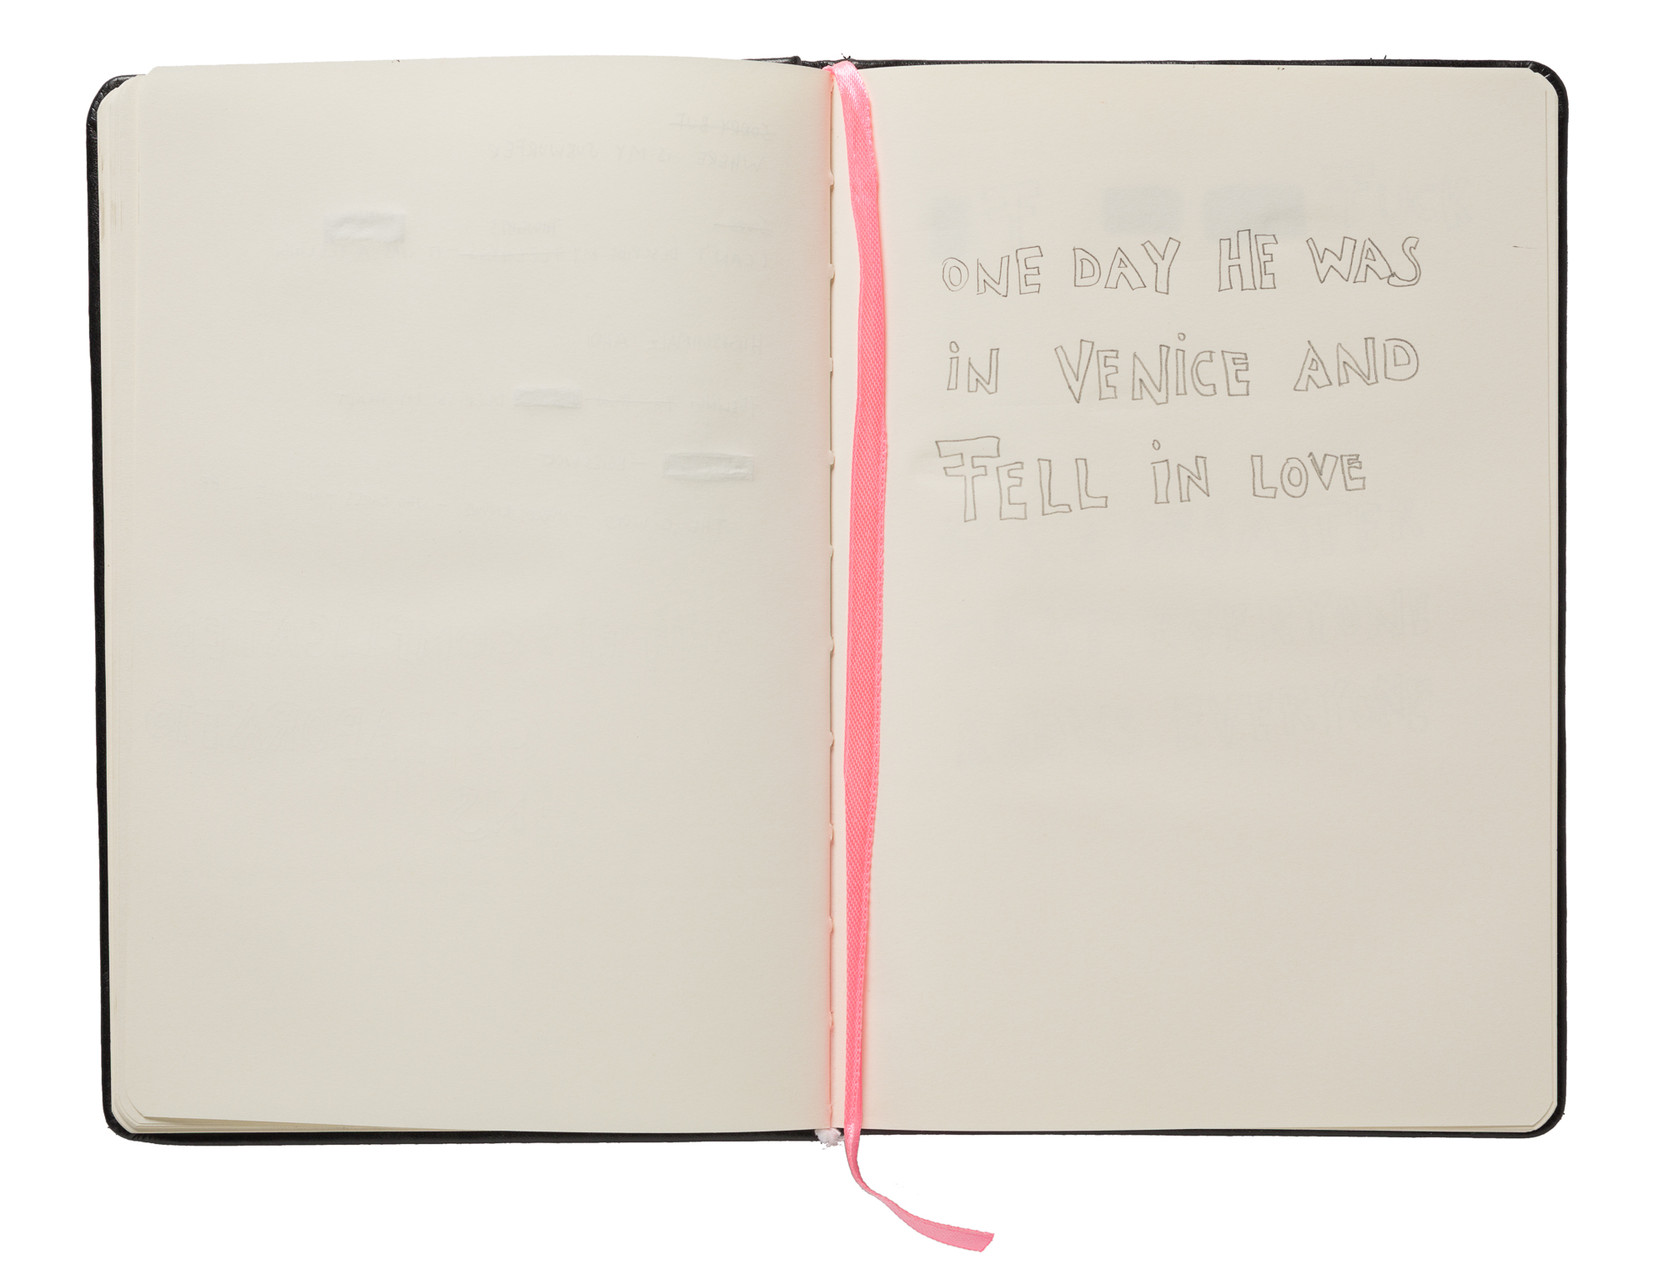 ONE DAY HE WAS
iN VENiCE AND
FELL iN LOVE